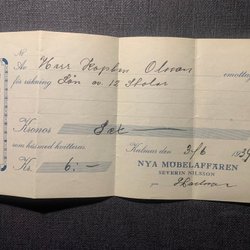 Nº
Av Herr Kapten Olsson emottag
för räkning Lån av 12 Stolar
Kronor Sex
som härmed kvitteras.
Kalmar den 3/6 1934
Kr. 6:-
NYA MÖBELAFFÄREN
SEVERIN NILSSON